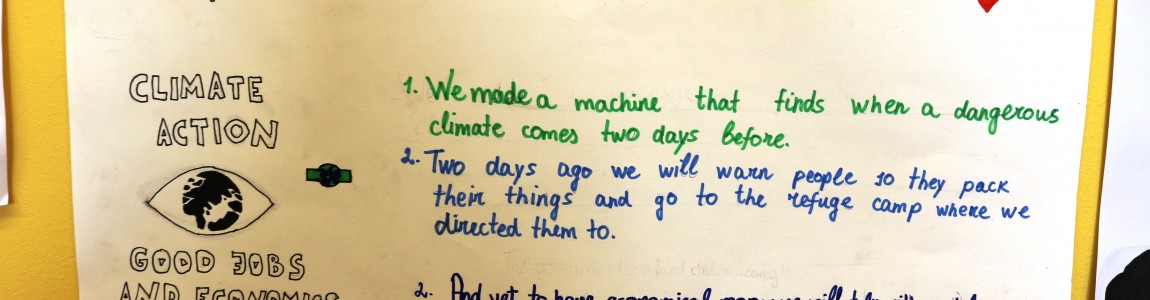 CLIMATE
ACTION
1. We made a machine that finds when a dangerous
climate comes two days before.
2. Two days ago we will warn people so they pack
their things and go to the refuge camp where we
directed them to.
GOOD JOBS
AND ECONOMICS
2. And yet to have economical